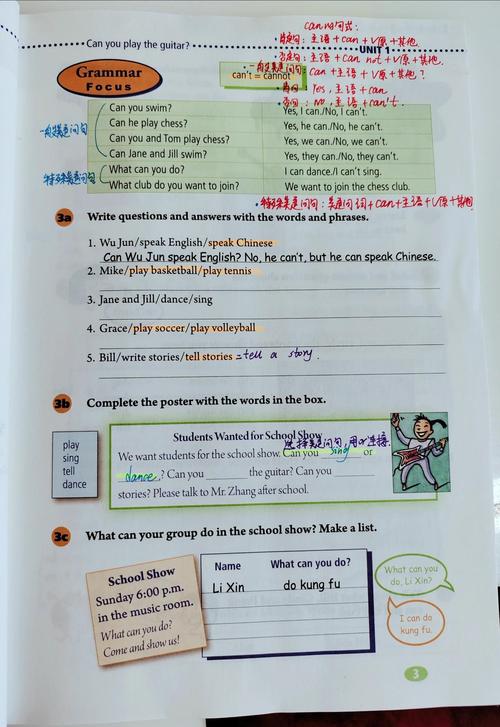 can的句式:
Can you play the guitar?
• 肯定句: 主语 + can + V原 + 其他.
UNIT 1
• 否定句: 主语 + can not + V原 + 其他.
Grammar
Focus
can't = cannot
• 一般疑问句: Can + 主语 + V原 + 其他?
肯回: Yes, 主语 + can
否回: No, 主语 + can't.
一般疑问句
Can you swim? Yes, I can./No, I can't.
Can he play chess? Yes, he can./No, he can't.
Can you and Tom play chess? Yes, we can./No, we can't.
Can Jane and Jill swim? Yes, they can./No, they can't.
特殊疑问句
What can you do? I can dance./I can't sing.
What club do you want to join? We want to join the chess club.
• 特殊疑问句: 疑问词 + can + 主语 + V原 + 其他
3a Write questions and answers with the words and phrases.
1. Wu Jun/speak English/speak Chinese
Can Wu Jun speak English? No, he can't, but he can speak Chinese.
2. Mike/play basketball/play tennis
3. Jane and Jill/dance/sing
4. Grace/play soccer/play volleyball
5. Bill/write stories/tell stories = tell a story.
3b Complete the poster with the words in the box.
play
sing
tell
dance
Students Wanted for School Show
选择疑问句, 用or连接.
We want students for the school show. Can you sing or
dance? Can you ______ the guitar? Can you ______
stories? Please talk to Mr. Zhang after school.
3c What can your group do in the school show? Make a list.
School Show
Sunday 6:00 p.m.
in the music room.
What can you do?
Come and show us!
Name What can you do?
Li Xin do kung fu
What can you
do, Li Xin?
I can do
kung fu.
3